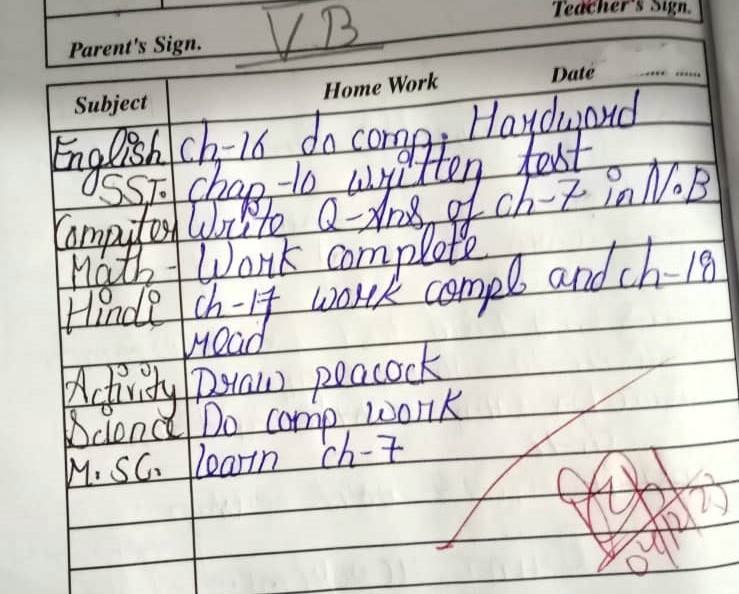 Teacher's Sign.
Parent's Sign. VB
Subject Home Work Date ..... ......
English ch-16 do comp. Hardword
SST. chap-10 written test
Computer Write Q-Ans of ch-7 in N.B
Math - Work complete
Hindi ch-17 work compl and ch-18
read
Activity Draw peacock
Science Do comp work
M.SC. learn ch-7